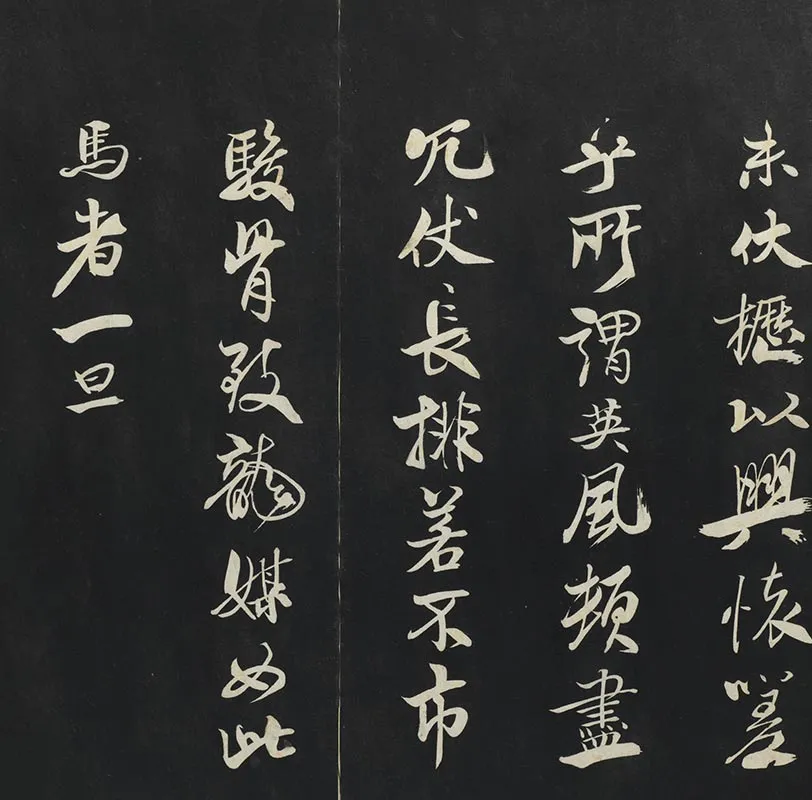 未伏櫪以興懷嗟
乎所謂英風頓盡
冗仗長排若不市
駿骨致龍媒如此
馬者一旦